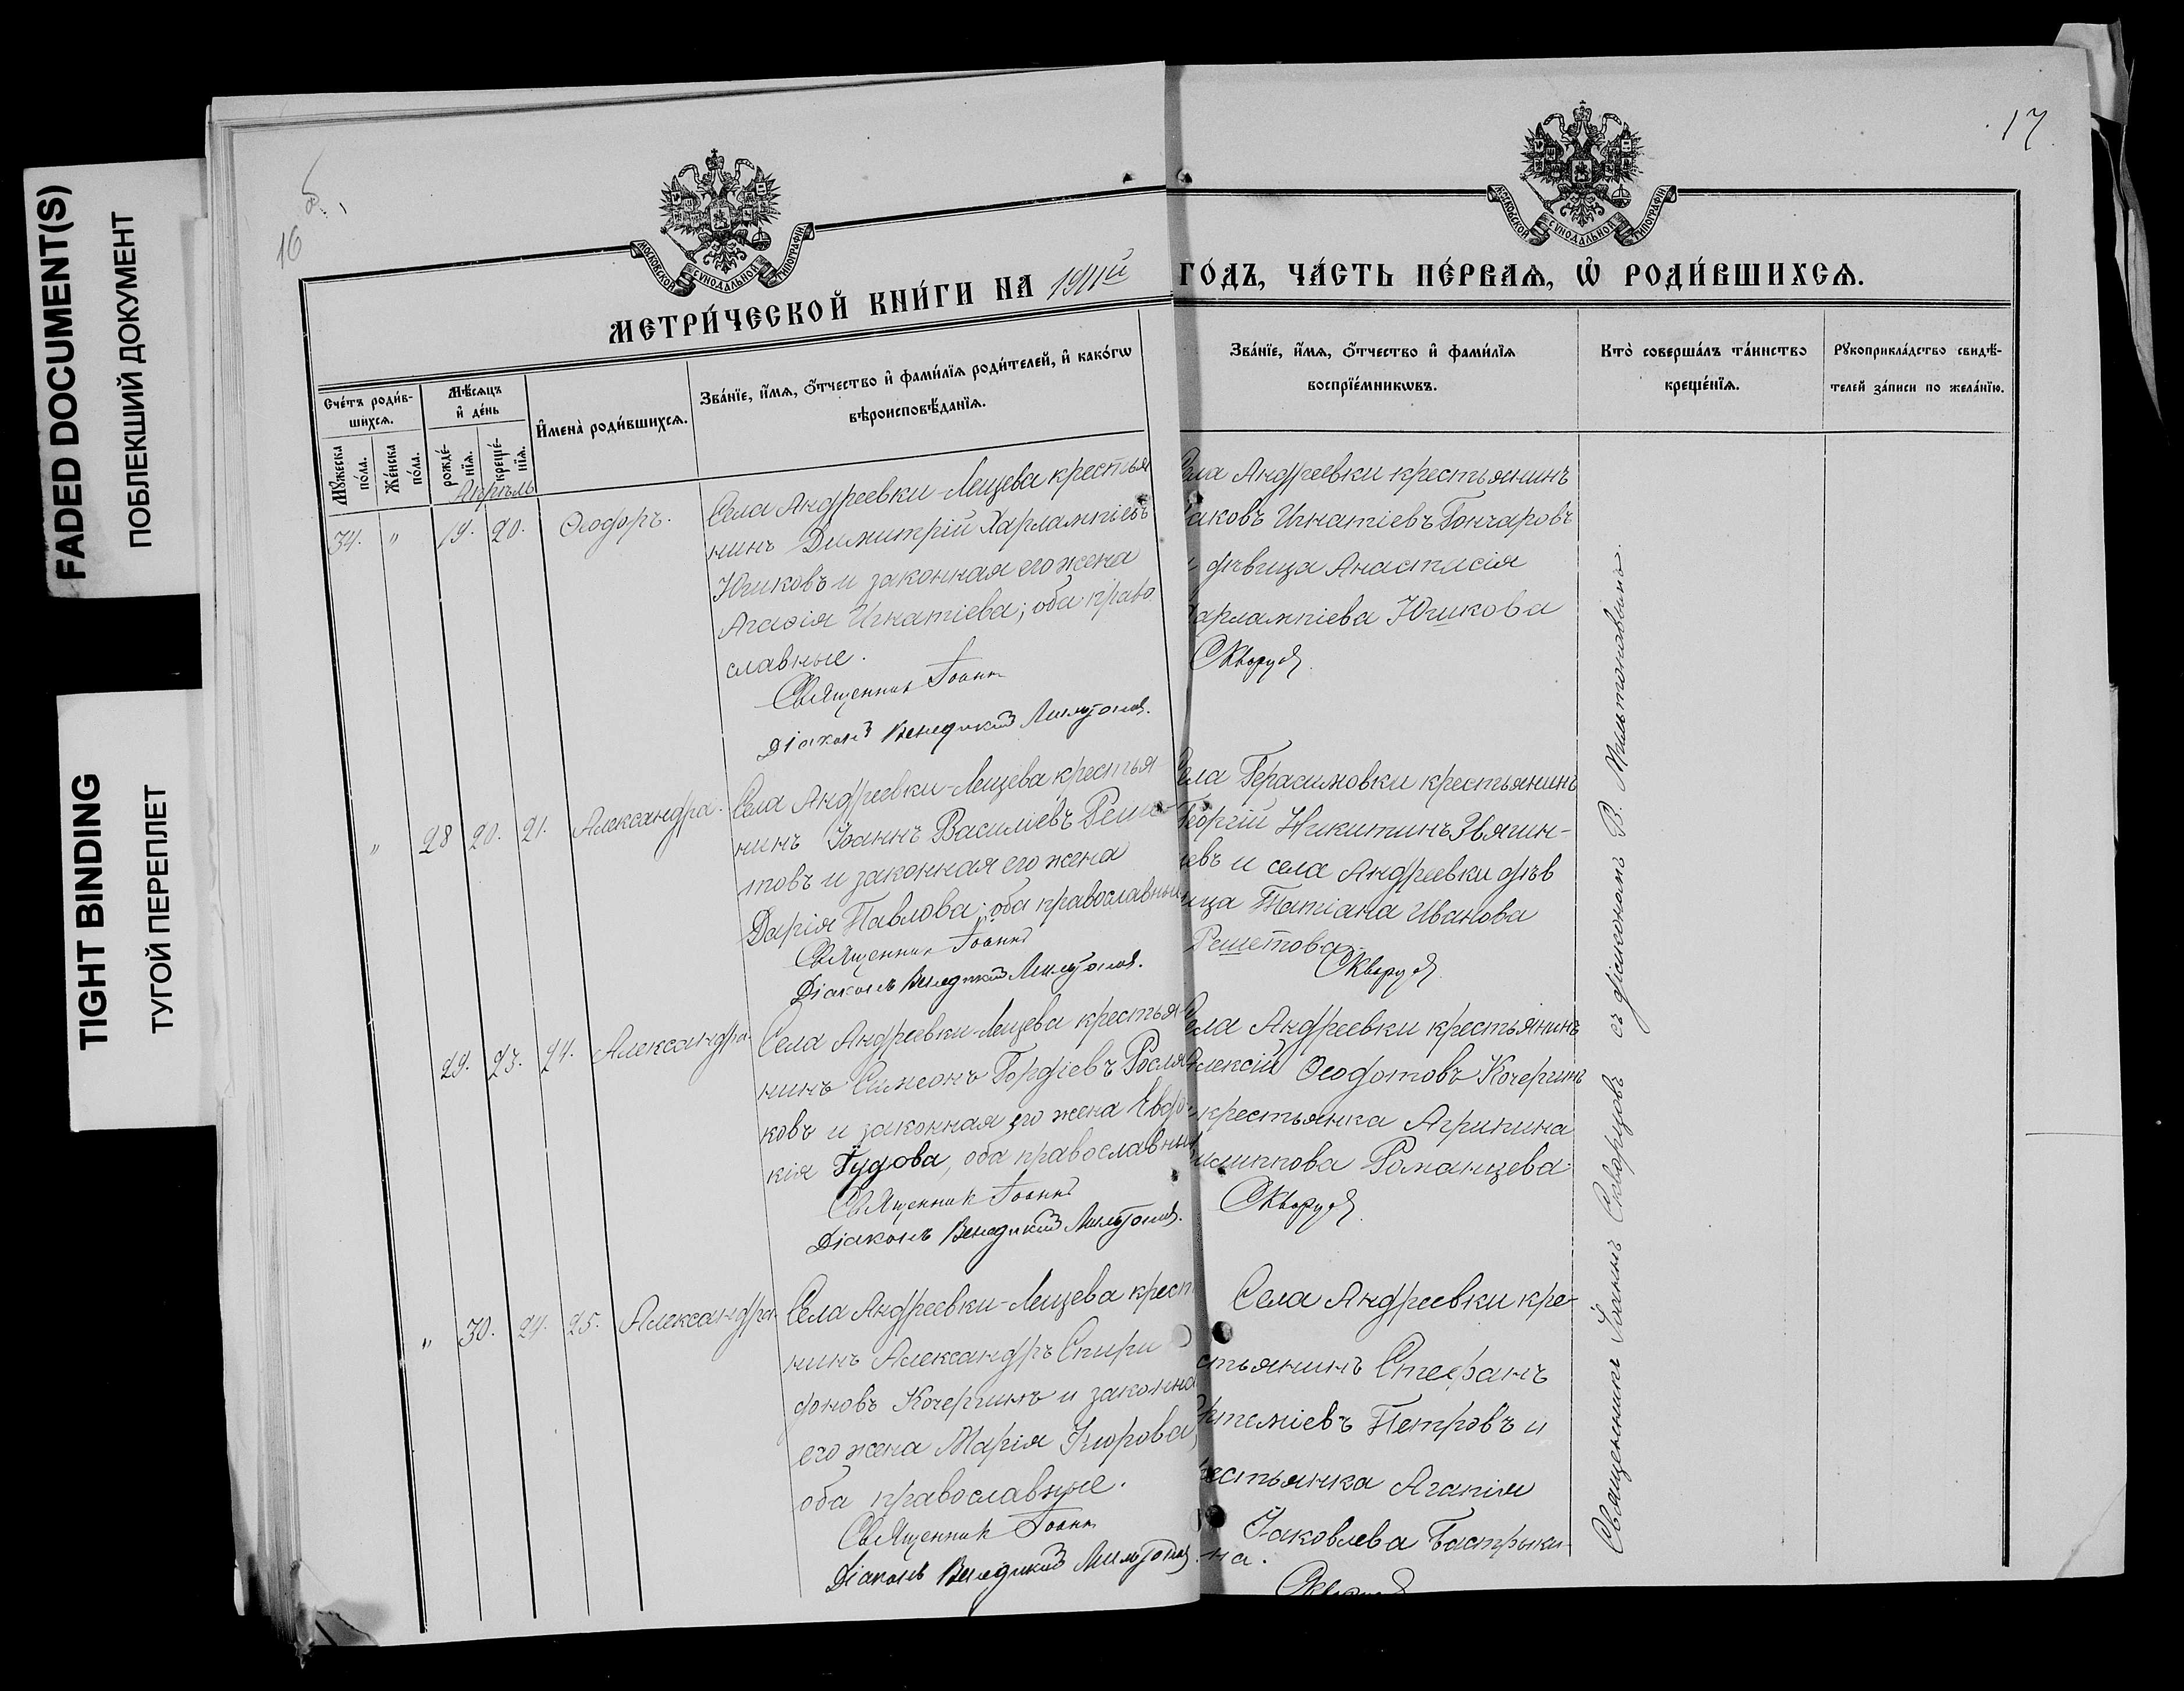 FADED DOCUMENT(S)
ПОБЛЕКШИЙ ДОКУМЕНТ
TIGHT BINDING
ТУГОЙ ПЕРЕПЛЕТ
16
17
МОСКОВСКОЙ СѴНОДАЛЬНОЙ ТИПОГРАФІИ
МОСКОВСКОЙ СѴНОДАЛЬНОЙ ТИПОГРАФІИ
МЕТРИ́ЧЕСКОЙ КНИ́ГИ НА 1911й
ГО́ДЪ, ЧА́СТЬ ПЕ́РВАѦ, Ѡ҆ РОДИ́ВШИХСѦ.
Сче́тъ роди́в-
шихсѧ.
Мꙋ́жеска
по́ла.
Же́нска
по́ла.
Мѣ́сѧцъ
и҆ де́нь
рожде́-
нїѧ.
креще́-
нїѧ.
И҆мена̀ роди́вшихсѧ.
Зва́нїе, и҆́мѧ, ѻ҆́тчество и҆ фами́лїѧ роди́телей, и҆ како́гѡ
вѣроисповѣ́данїѧ.
Зва́нїе, и҆́мѧ, ѻ҆́тчество и҆ фами́лїѧ
воспрїе́мникѡвъ.
Кто̀ соверша́лъ та́инство
креще́нїѧ.
Рꙋкоприкла́дство свидѣ́-
телей за́писи по жела́нїю.
Апрѣль
34. " 19. 20. Ѳеодоръ.
Села Андреевки-Лещева крестья
нинъ Димитрій Харлампіевъ
Юшковъ и законная его жена
Агаѳія Игнатіева; оба право
славные.
Священник Іоанн
Діаконъ Венедиктъ Мильтонов.
Села Андреевки крестьянинъ
Іаковъ Игнатіевъ Гончаровъ
и дѣвица Анастасія
Харлампіева Юшкова
Скворцов
" 28 20. 21. Александра.
Села Андреевки-Лещева крестья
нинъ Іоаннъ Василіевъ Реше
товъ и законная его жена
Дарія Павлова; оба православные
Священник Іоаннъ
Діаконъ Венедиктъ Мильтонов.
Села Герасимовки крестьянинъ
Георгій Никитинъ Звягин-
цевъ и села Андреевки дѣв
ица Татіана Иванова
Решетова
Скворцов
29. 23. 24. Александра.
Села Андреевки-Лещева крестья
нинъ Симеонъ Гордіевъ Росля
ковъ и законная его жена Евдо
кія Гудова, оба православные
Священникъ Іоаннъ
Діаконъ Венедиктъ Мильтонов.
Села Андреевки крестьянинъ
Алексій Ѳеодотовъ Кочергинъ
крестьянка Агрипина
Филиппова Романцева
Скворцов
" 30. 24. 25. Александра.
Села Андреевки-Лещева крест
нинъ Александръ Спири
доновъ Кочергинъ и законна
его жена Марія Кирова,
оба православные.
Священник Іоанн
Діаконъ Венедиктъ Мильтонов.
Села Андреевки кре-
стьянинъ Стефанъ
Артеміевъ Петровъ и
крестьянка Агапія
Іаковлева Бастрыки-
на.
Скворцов
Священникъ Іоаннъ Скворцовъ съ діакономъ В. Мильтоновымъ.